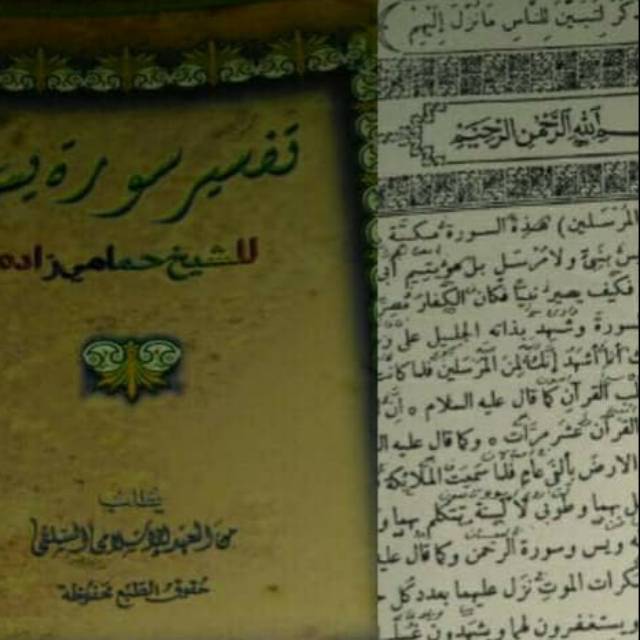 تفسير سورة يس
للشيخ حمامي زاده
يطلب
من المعهد الإسلامي السلفي
حقوق الطبع محفوظة
كر لتبين للناس ما نزل إليهم
الله الرحمن الرحيم
المرسلين) هذه السورة مكية
بنبي ولا مرسل بل هو يتيم
فكيف يصير نبيا فكان الكفار
سورة وشهد بذاته الجليل على
أنا أشهد إنك لمن المرسلين فلما كان
القرآن كما قال عليه السلام
القرآن عشر مرات وكما قال عليه
الارض بألفي عام فلما سمعت الملائكة
بهما وطوبى لألسنة يتكلم بهما و
ويس وسورة الرحمن وكما قال عليه
كرات الموت نزل عليهما بعدد كل
يستغفرون لهما ويشهدون